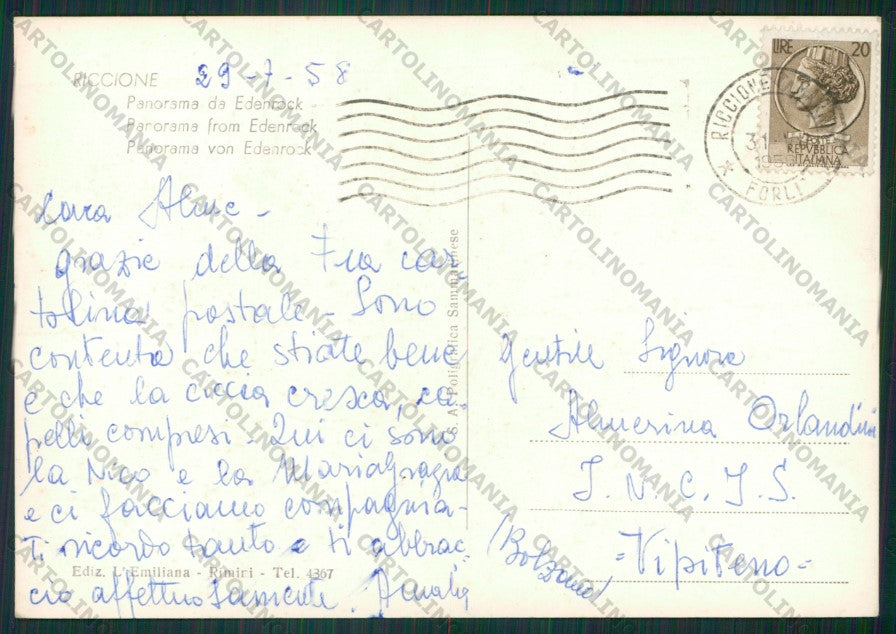 RICCIONE 29-7-58
Panorama da Edenrock
Panorama from Edenrock
Panorama von Edenrock
LIRE 20
REPVBBLICA
ITALIANA
RICCIONE
FORLI
Cara Alme -
grazie della Tua car-
tolina postale - Sono
contenta che stiate bene
e che la ciccia cresca, ca-
pelli compresi - Qui ci sono
la Nico e la MariaGrazia
e ci facciamo compagnia -
Ti ricordo tanto e ti abbrac-
cio affettuosamente. Amalia
Ediz. L'Emiliana - Rimini - Tel. 4367
S. A. Poligrafica Sammarinese
Gentile Signora
Almerina Orlandini
I. N. C. I. S.
= Vipiteno =
(Bolzano)
CARTOLINOMANIA